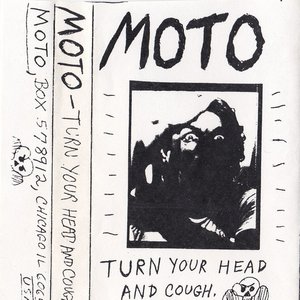 MOTO, BOX 578912, CHICAGO IL
MOTO - TURN YOUR HEAD AND
MOTO
TURN YOUR HEAD
AND COUGH.